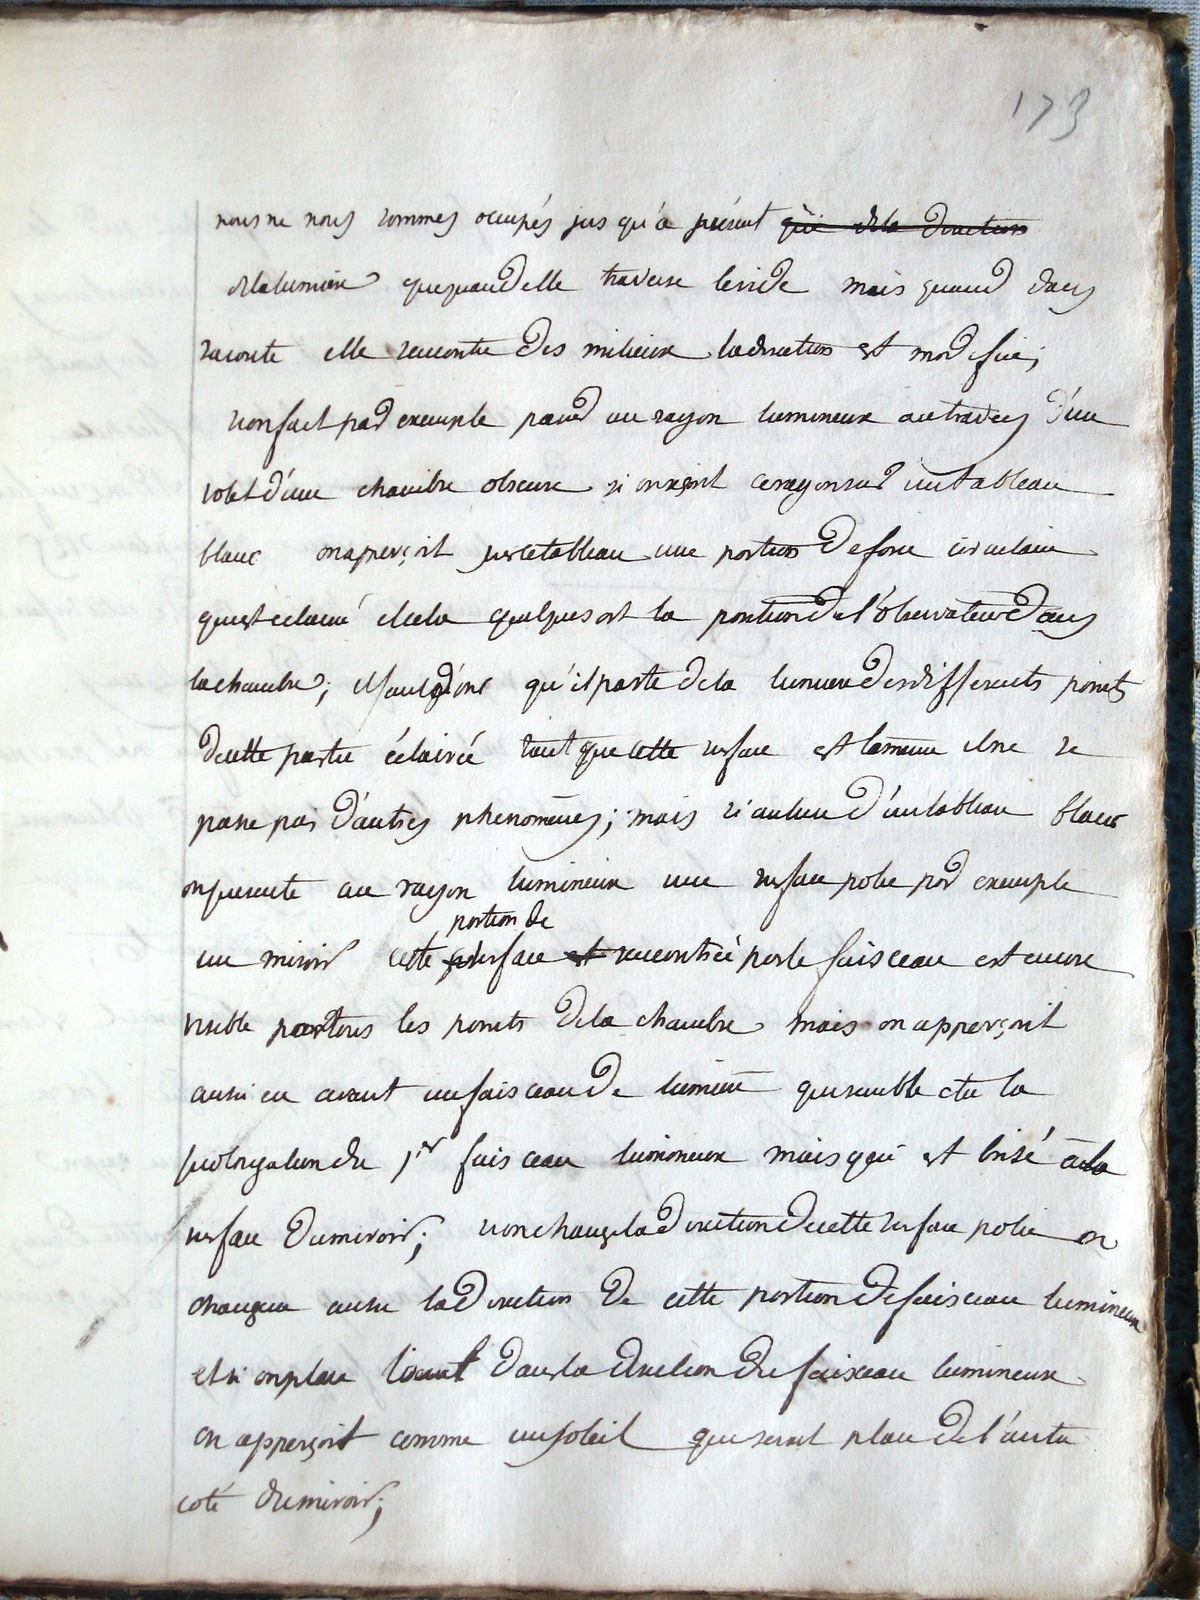 173
nous ne nous sommes occupés jusqu'à présent que de la direction
de la lumiere que quand elle traverse le vide mais quand dans
sa route elle rencontre des milieux la direction est modifiée;
si on fait par exemple passer un rayon lumineux au travers d'un
volet d'une chambre obscure si on reçoit ce rayon sur un tableau
blanc on aperçoit sur ce tableau une portion de forme circulaire
qui est eclairé et cela quelque soit la position de l'observateur dans
la chambre; il faut donc qu'il parte de la lumiere des différents points
de cette partie éclairée tant que cette surface est la meme il ne se
passe pas d'autres phenomenes; mais si au lieu d'un tableau blanc
on presente au rayon lumineux une surface polie par exemple
portion de
un miroir cette surface est rencontrée par le faisceau est encore
visible par tous les points de la chambre mais on apperçoit
aussi en avant un faisceau de lumiere qui semble etre la
prolongation du 1er faisceau lumineux mais qui est brisé à la
surface du miroir; si on change la direction de cette surface polie on
changera aussi la direction de cette portion de faisceau lumineux
et si on place l'oeil dans la direction du faisceau lumineux
on apperçoit comme un soleil qui serait placé de l'autre
coté du miroir;